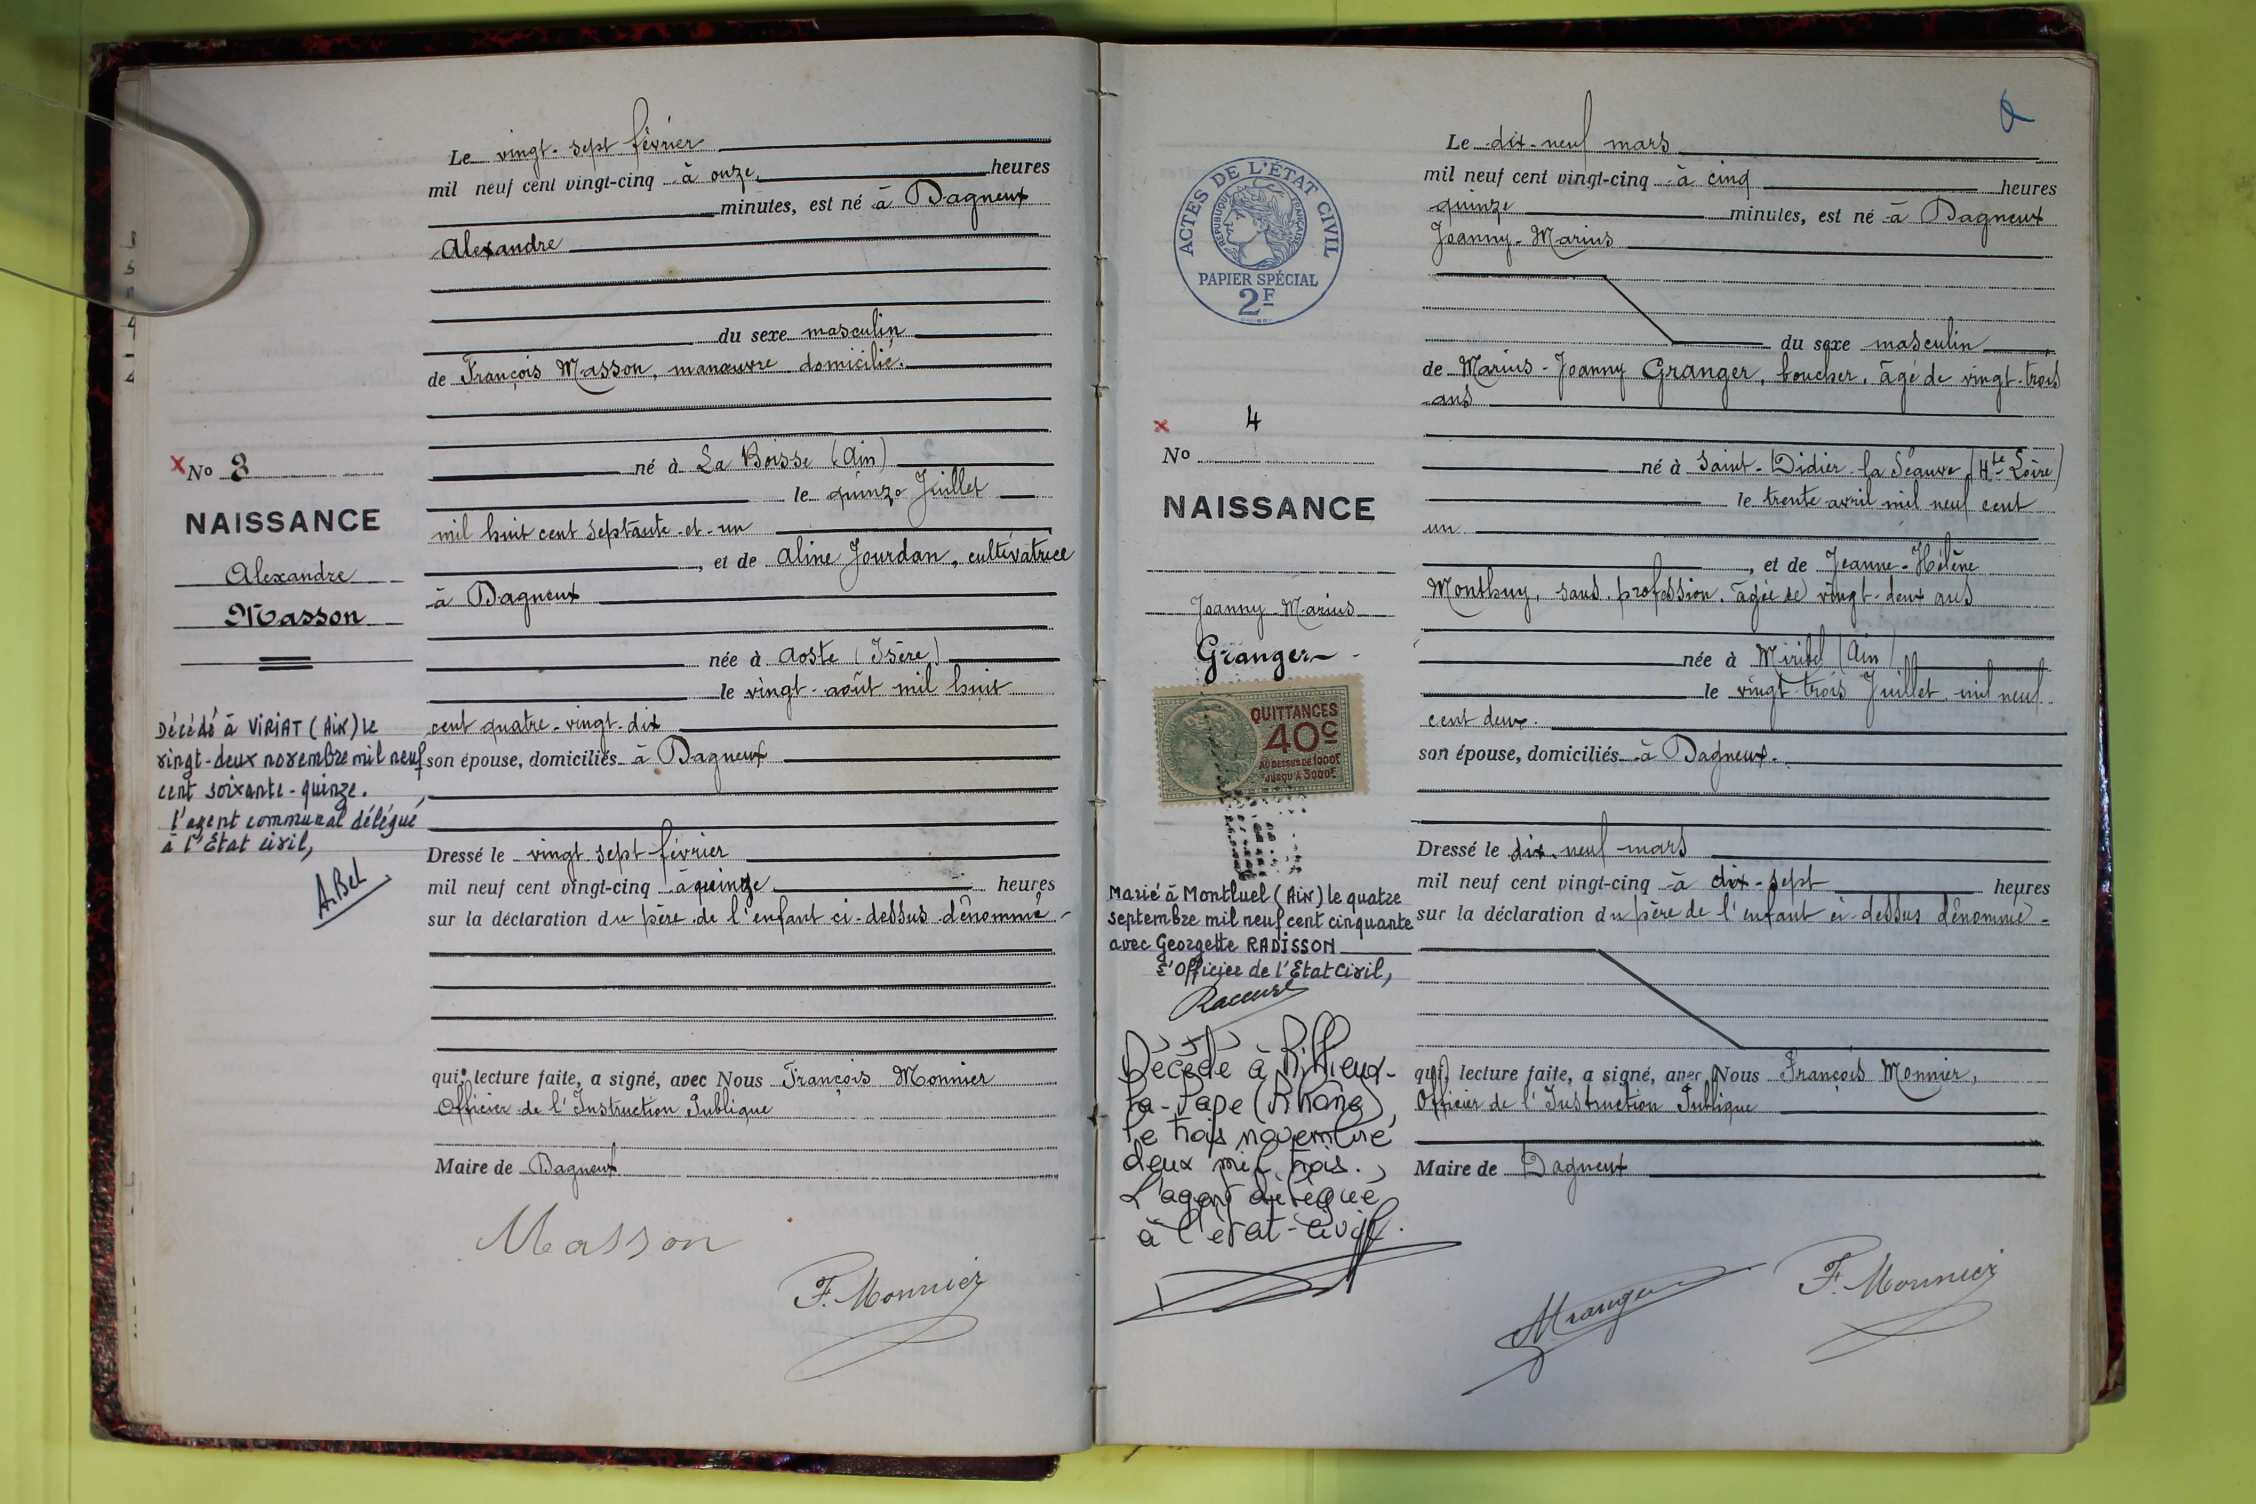 Le vingt-sept février
mil neuf cent vingt-cinq à onze, heures
minutes, est né à Dagneux
Alexandre
du sexe masculin
de François Masson, manœuvre domicilié.
né à La Boisse (Ain)
le quinze Juillet
mil huit cent septante-et-un
, et de Aline Jourdan, cultivatrice
à Dagneux
née à Aoste (Isère)
le vingt-août mil huit
cent quatre-vingt-dix
son épouse, domiciliés à Dagneux
Dressé le vingt sept février
mil neuf cent vingt-cinq à quinze heures
sur la déclaration du père de l'enfant ci-dessus dénommé
qui, lecture faite, a signé, avec Nous François Monnier
Officier de l'Instruction Publique
Maire de Dagneux
Masson
F. Monnier
x No 3
NAISSANCE
Alexandre
Masson
Décédé à VIRIAT (AIN) le
vingt-deux novembre mil neuf
cent soixante-quinze.
l'agent communal délégué
à l'Etat civil,
A.Bel
ACTES DE L'ÉTAT CIVIL
RÉPUBLIQUE FRANÇAISE
PAPIER SPÉCIAL
2F
x 4
No
NAISSANCE
Joanny-Marius
Granger
QUITTANCES
40c
AU DESSUS DE 1000F
JUSQU'A 3000F
Marié à Montluel (AIN) le quatre
septembre mil neuf cent cinquante
avec Georgette RADISSON
L'Officier de l'Etat Civil,
Décédé à Rillieux-
la-Pape (Rhône)
le trois novembre
deux mil trois.
L'agent délégué
à l'état-civil.
Le dix-neuf mars
mil neuf cent vingt-cinq à cinq heures
quinze minutes, est né à Dagneux
Joanny-Marius
du sexe masculin
de Marius-Joanny Granger, boucher, âgé de vingt-trois
ans
né à Saint-Didier-la Séauve (Hte Loire)
le trente avril mil neuf cent
un
, et de Jeanne-Hélène
Monthuy, sans profession, âgée de vingt-deux ans
née à Miribel (Ain)
le vingt-trois Juillet mil neuf
cent deux.
son épouse, domiciliés à Dagneux.
Dressé le dix-neuf mars
mil neuf cent vingt-cinq à dix-sept heures
sur la déclaration du père de l'enfant ci-dessus dénommé
qui, lecture faite, a signé, avec Nous François Monnier,
Officier de l'Instruction Publique
Maire de Dagneux
Granger
F. Monnier